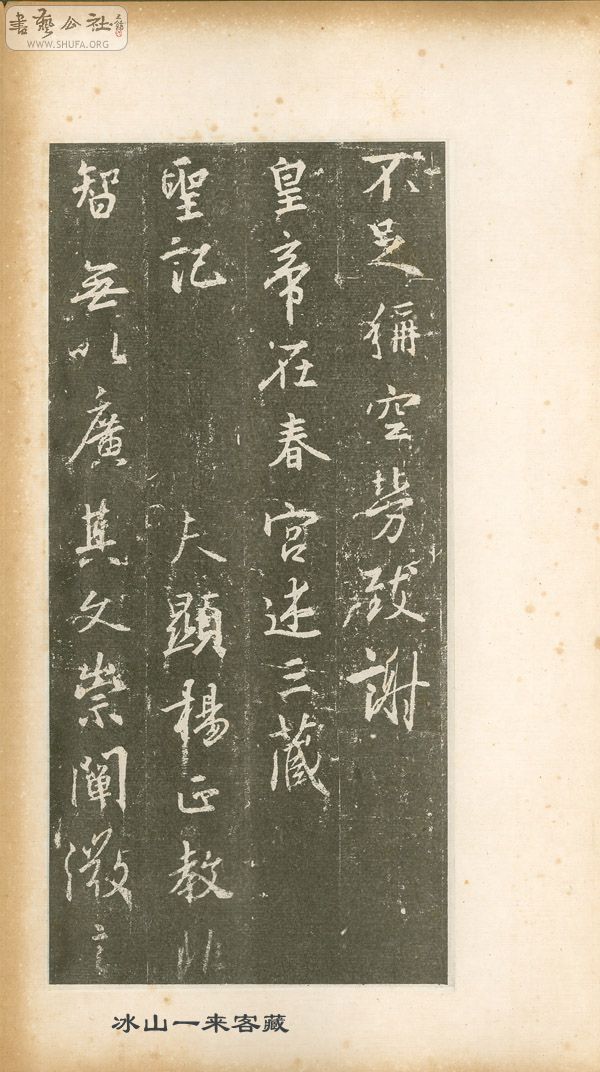 書藝公社
WWW.SHUFA.ORG
不足稱空勞致謝
皇帝在春宮述三藏
聖記 夫顯楊正教非
智無以廣其文崇闡微言
冰山一来客藏